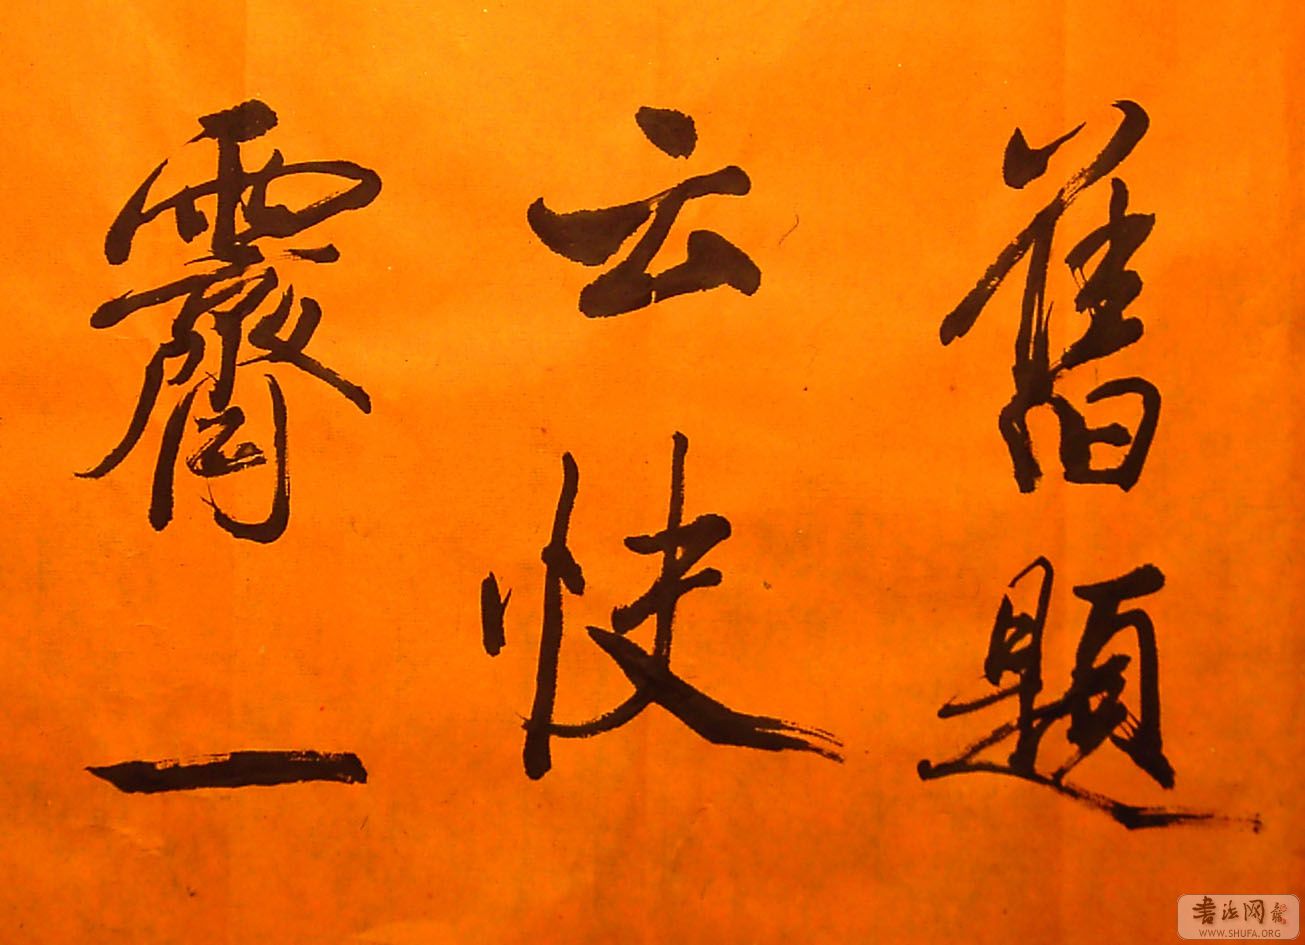 舊題
云快
霽一
書法网
WWW.SHUFA.ORG